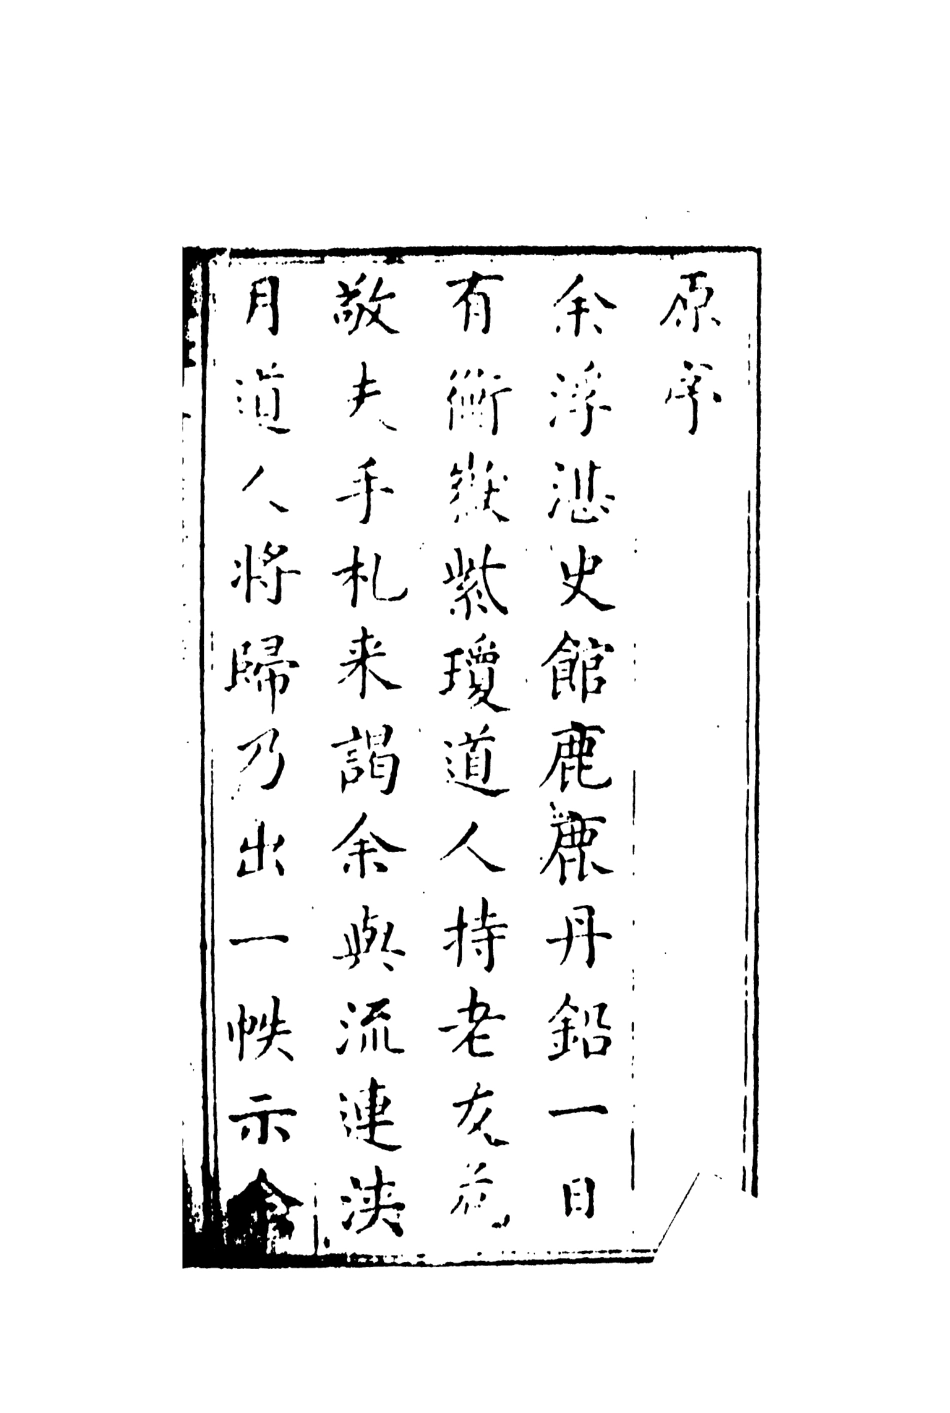 原序
余浮湛史館鹿鹿丹鉛一日
有衡嶽紫瓊道人持老友
敬夫手札来謁余與流連浹
月道人將歸乃出一帙示余